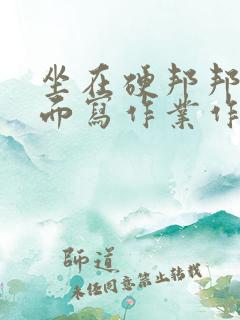 坐在硬邦邦
而寫作業作
師道
未經同意禁止轉載